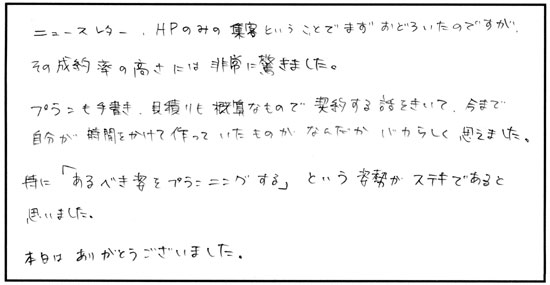 ニュースレター、HPのみの集客ということでまずおどろいたのですが、
その成約率の高さには非常に驚きました。
プランも手書き、見積りも概算なもので契約する話をきいて、今まで
自分が時間をかけて作っていたものがなんだかバカらしく思えました。
特に「あるべき姿をプランニングする」という姿勢がステキであると
思いました。
本日はありがとうございました。